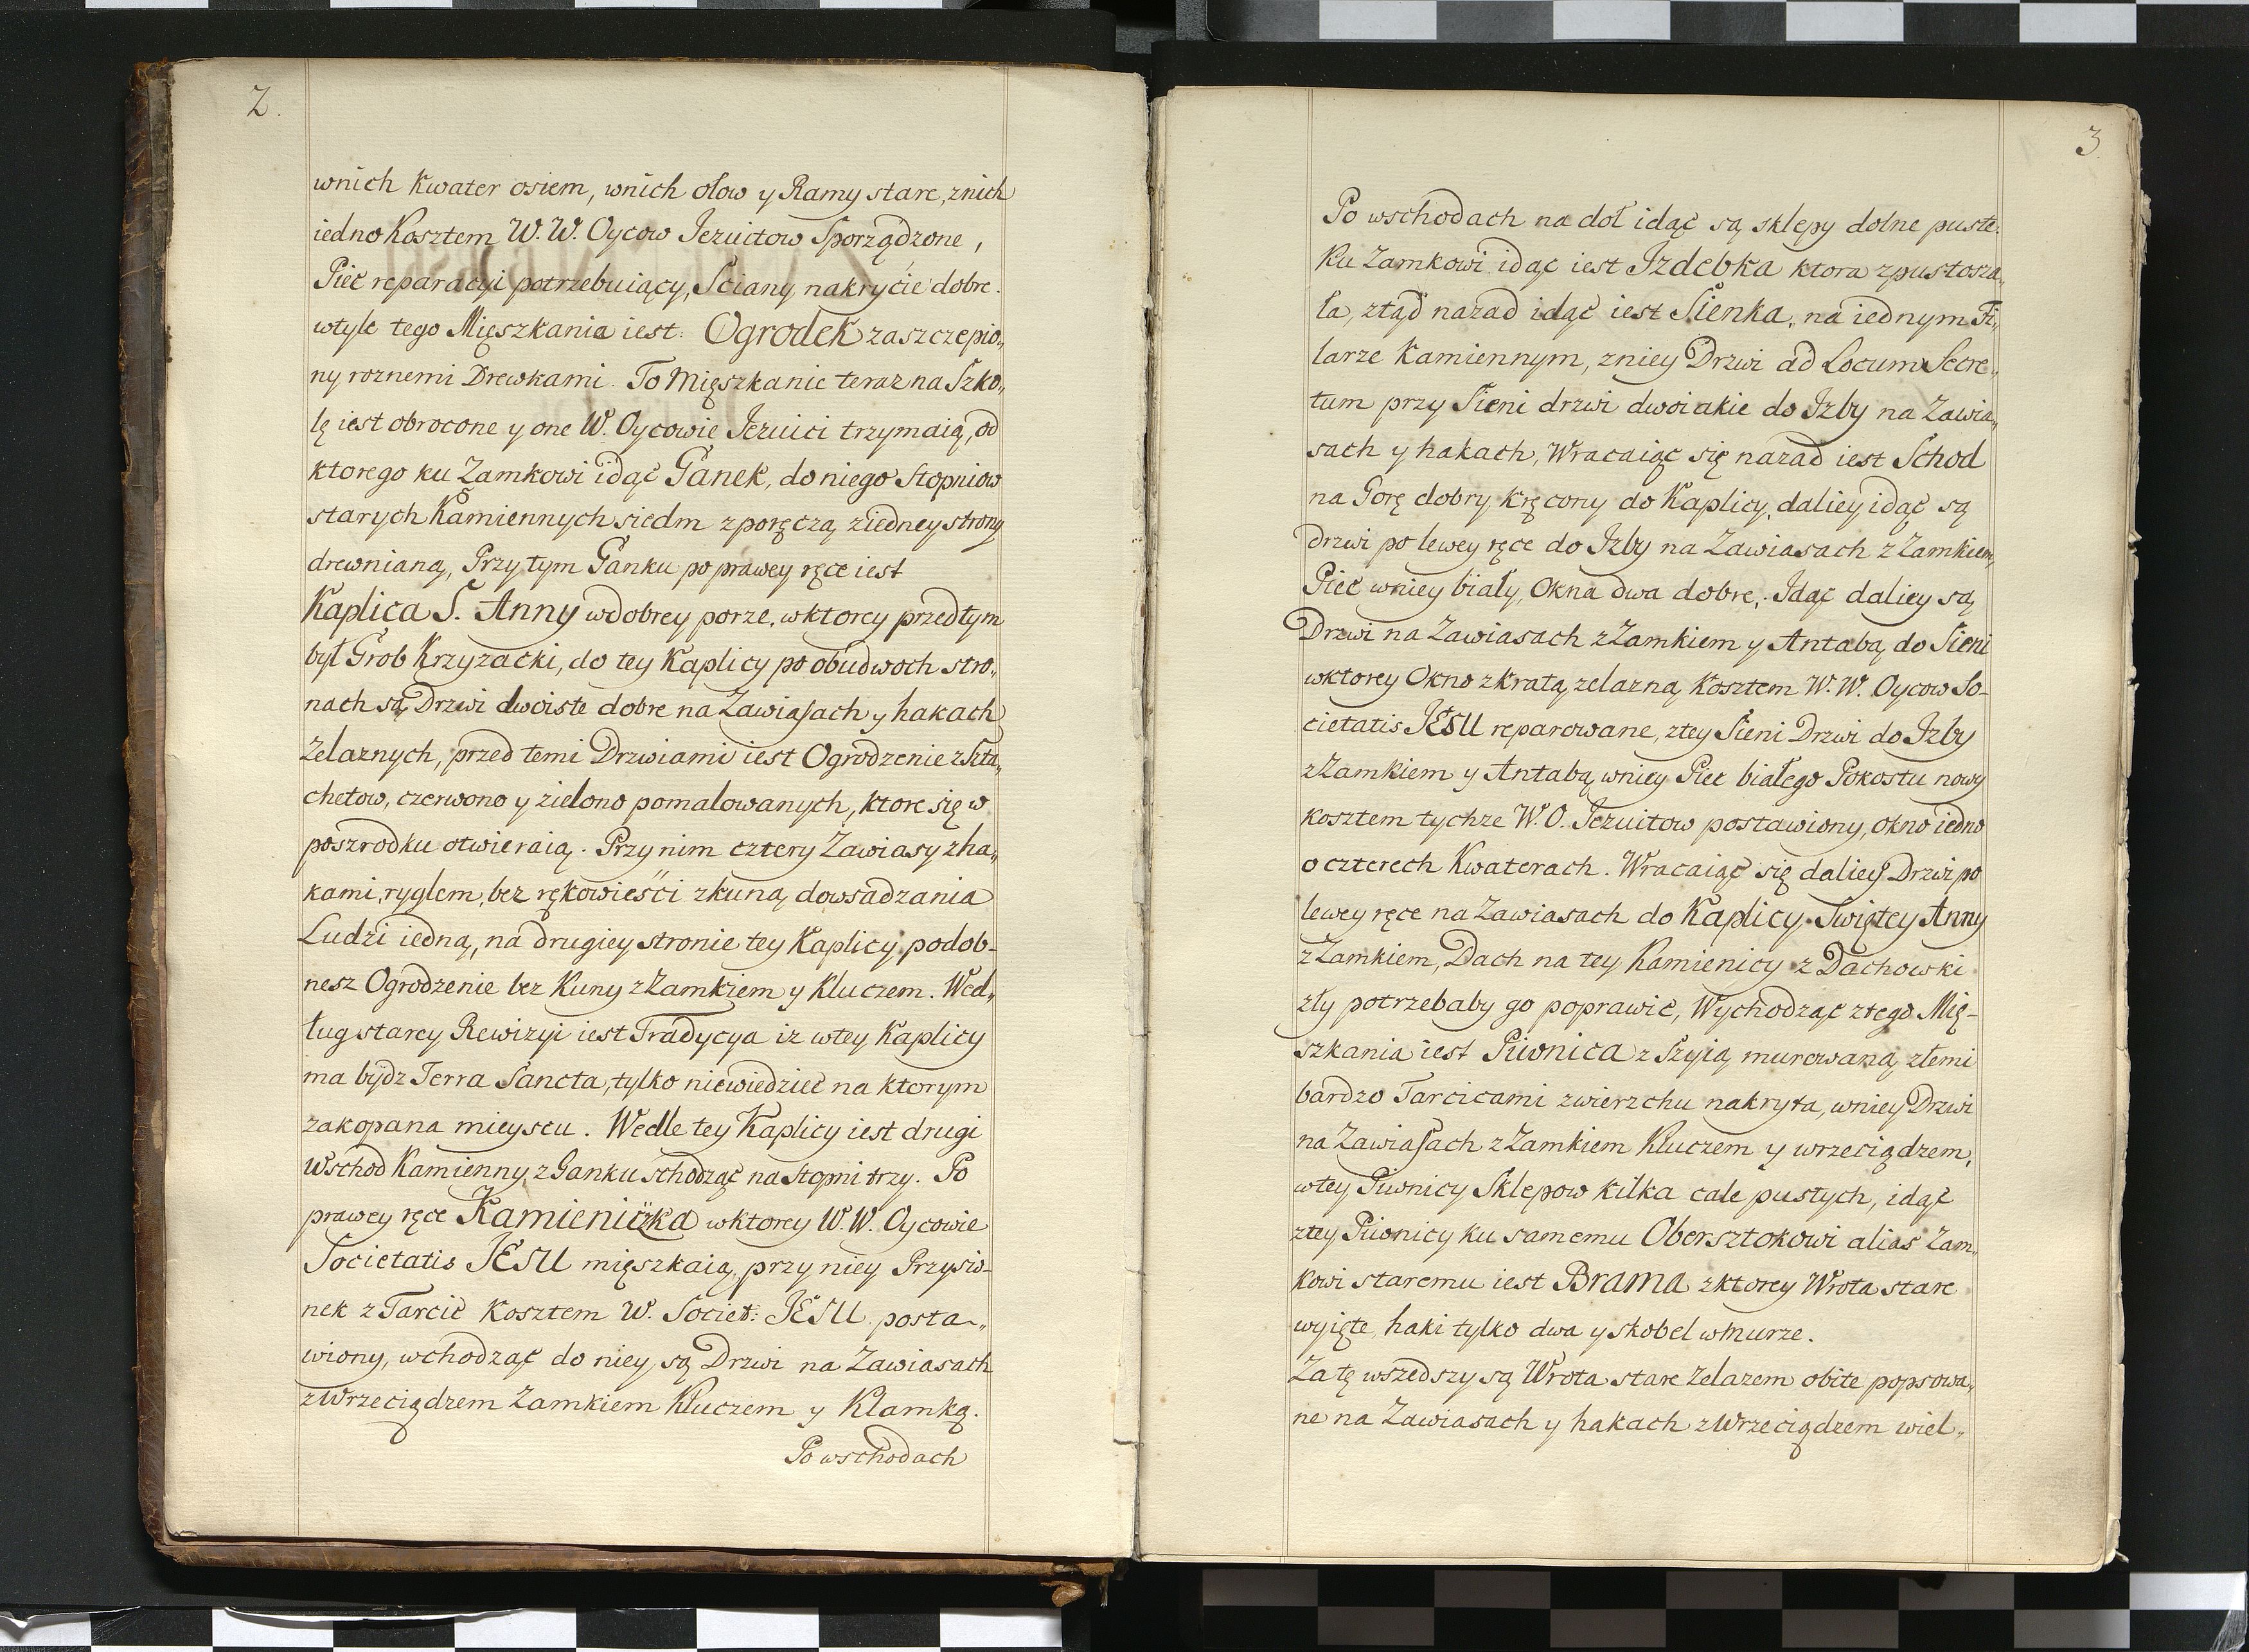 2.
wnich Kwater osiem, wnich ołow y Ramy stare, znich
iedno Kosztem W. W. Oycow Jezuitow Sporządzone,
Piec reparacyi potrzebuiący, Sciany, nakrycie dobre.
wtyle tego Mięszkania iest. Ogrodek zaszczepio„
ny roznemi Drewkami. To Mięszkanie teraz na Szko„
lę iest obrocone y one W. Oycowie Jezuici trzymaią, od
ktorego ku Zamkowi idąc Ganek, do niego Stopniow
starych Kamiennych siedm z poręczą ziedney strony
drewnianą, Przy tym Ganku po prawey ręce iest
Kaplica S. Anny wdobrey porze, wktorey przedtym
był Grob Krzyzacki, do tey Kaplicy po obudwoch stro„
nach są Drzwi dwoiste dobre na Zawiasach y hakach
Zelaznych, przed temi Drzwiami iest Ogrodzenie z Szta„
chetow, czerwono y zielono pomalowanych, ktore się w
poszrodku otwieraią. Przy nim cztery Zawiasy z ha„
kami, ryglem, bez rękowieści z kuną dowsadzania
Ludzi iedną, na drugiey stronie tey Kaplicy podob-
nesz Ogrodzenie bez Kuny z Zamkiem y Kluczem. Wed„
ług starey Rewizyi iest Tradycya iz wtey Kaplicy
ma bydz Terra Sancta, tylko niewiedziec na ktorym
zakopana mieyscu. Wedle tey Kaplicy iest drugi
Wschod Kamienny z Ganku schodząc na Stopni trzy. Po
prawey ręce Kamieniczka wktorey W. W. Oycowie
Societatis JESU mięszkaią, przy niey Przysio-
nek z Tarcic Kosztem W. Societ: JESU posta„
wiony, wchodząc do niey, są Drzwi na Zawiasach
z Wrzeciądzem Zamkiem Kluczem y Klamką.
Po wschodach
3.
Po wschodach na doł idąc są sklepy dolne puste.
Ku Zamkowi idąc iest Jzdebka ktora zpustosza„
ła, ztąd nazad idąc iest Sienka, na iednym Fi„
larze Kamiennym, zniey Drzwi ad Locum Secre„
tum przy Sieni drzwi dwoiakie do Jzby na Zawia„
sach y hakach, Wracaiąc się nazad iest Schod
na Gorę dobry, kręcony do Kaplicy, daliey idąc są
drzwi po lewey ręce do Jzby na Zawiasach z Zamkiem,
Piec wniey biały, Okna dwa dobre, Jdąc daliey są
Drzwi na Zawiasach z Zamkiem y Antabą, do Sieni
wktorey Okno z kratą zelazną Kosztem W. W. Oycow So-
cietatis JESU reparowane, ztey Sieni Drzwi do Jzby
z Zamkiem y Antabą, wniey Piec białego Pokostu nowy
kosztem tychze W. O. Jezuitow postawiony, okno iedno
o czterech Kwaterach. Wracaiąc się daliey Drzwi po
lewey ręce na Zawiasach do Kaplicy Swiętey Anny
z Zamkiem, Dach na tey Kamienicy z Dachowki
zły potrzebaby go poprawic, Wychodząc ztego Mię-
szkania iest Piwnica z Szyią murowaną złemi
bardzo Tarcicami zwierzchu nakryta, wniey Drzwi
na Zawiasach z Zamkiem Kluczem y wrzeciądzem,
wtey Piwnicy Sklepow kilka cale pustych, idąc
ztey Piwnicy ku samemu Obersztokowi alias Zam„
kowi staremu iest Brama z ktorey Wrota stare
wyięte, haki tylko dwa y skobel wmurze.
Za tę wszedszy są Wrota stare Zelazem obite popsowa„
ne na Zawiasach y hakach z Wrzeciądzem wiel„